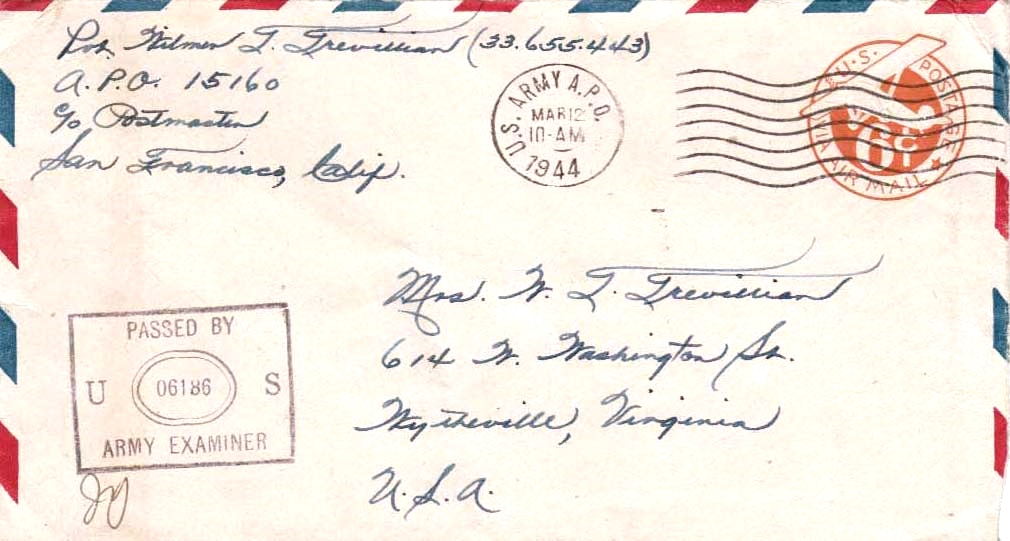 Pvt. Wilmer T. Trevillian (33.655.443)
A.P.O. 15160
c/o Postmaster
San Francisco, Calif.
U.S. ARMY A.P.O.
MAR 12
10-AM
1944
U.S. POSTAGE
6¢
VIA AIR MAIL
Mrs. W. T. Trevillian
614 W. Washington St.
Wytheville, Virginia
U.S.A.
PASSED BY
U 06186 S
ARMY EXAMINER